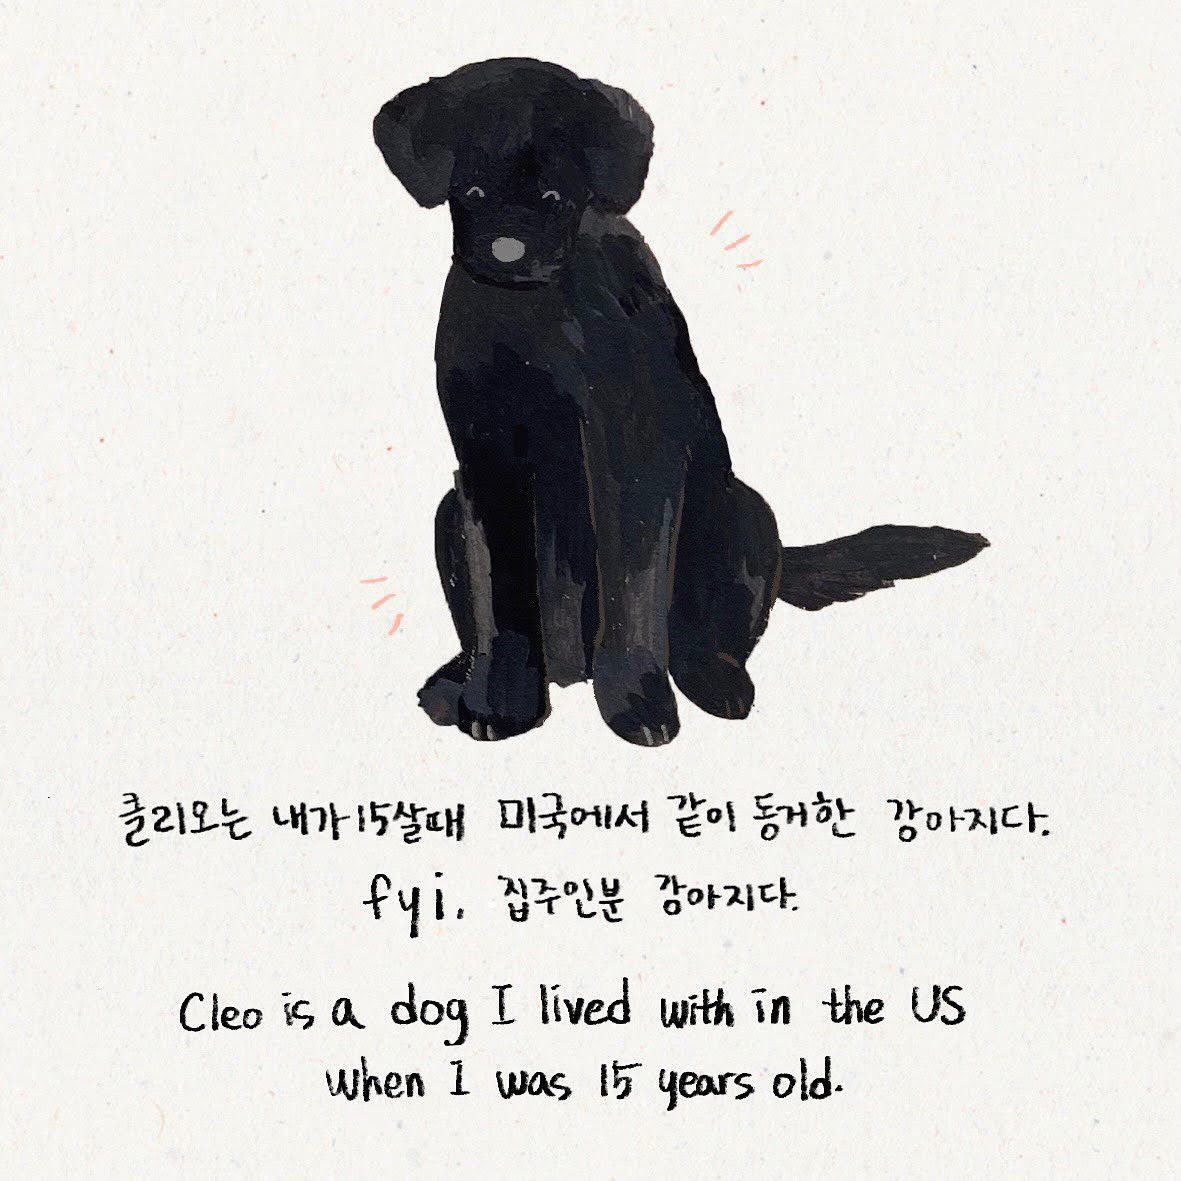 클리오는 내가 15살때 미국에서 같이 동거한 강아지다.
fyi, 집주인분 강아지다.
Cleo is a dog I lived with in the US
when I was 15 years old.